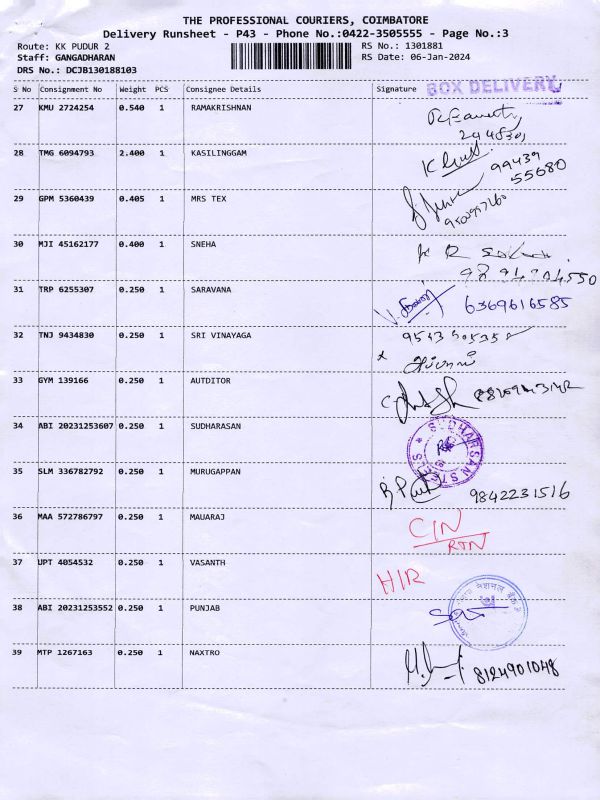 THE PROFESSIONAL COURIERS, COIMBATORE
Delivery Runsheet - P43 - Phone No.:0422-3505555 - Page No.:3
Route: KK PUDUR 2
RS No.: 1301881
Staff: GANGADHARAN
RS Date: 06-Jan-2024
DRS No.: DCJB130188103
S No Consignment No Weight PCS Consignee Details Signature BOX DELIVERY
27 KMU 2724254 0.540 1 RAMAKRISHNAN
28 TMG 6094793 2.400 1 KASILINGGAM
99439
55680
29 GPM 5360439 0.405 1 MRS TEX
30 MJI 45162177 0.400 1 SNEHA
31 TRP 6255307 0.250 1 SARAVANA 6369616585
32 TNJ 9434830 0.250 1 SRI VINAYAGA
33 GYM 139166 0.250 1 AUTDITOR
34 ABI 20231253607 0.250 1 SUDHARASAN
SUDHARSAN STEELS
35 SLM 336782792 0.250 1 MURUGAPPAN
9842231516
36 MAA 572786797 0.250 1 MAUARAJ CIN
RTN
37 UPT 4054532 0.250 1 VASANTH
HIR
38 ABI 20231253552 0.250 1 PUNJAB
39 MTP 1267163 0.250 1 NAXTRO
8124901048